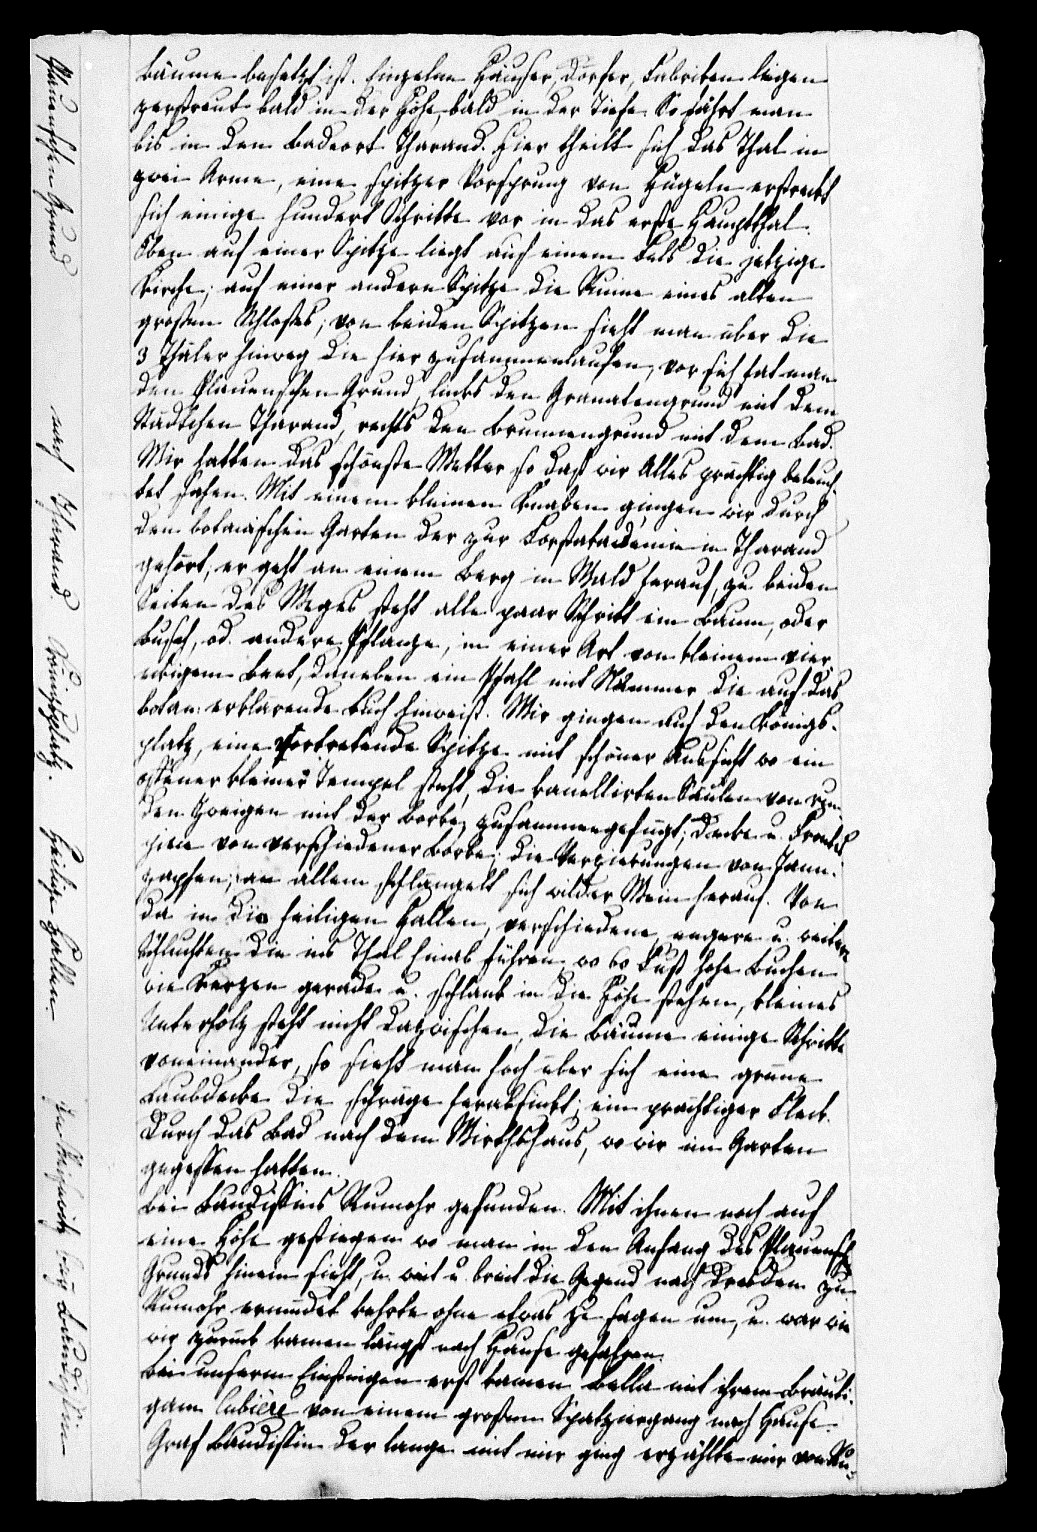 Bäume besetzt ist. Einzelne Häuser, Dörfer, Fabriken liegen
zerstreut bald in der Höhe, bald in der Tiefe. So fährt man
bis in den Badeort Tharand. Hier theilt sich das Thal in
zwei Arme, eine spitzer Vorsprung von Hügeln erstreckt
sich einige hundert Schritte vor in das erste Hauptthal.
Oben auf einer Spitze liegt auf einem Fels die jetzige
Kirche, auf einer andern Spitze die Ruine eines alten
großen Schloßes; von beiden Spitzen sieht man über die
3 Thäler hinweg die hier zusammenlaufen, vor sich hat man
den Plauenschen Grund, links den Granatengrund mit dem
Städtchen Tharand, rechts den Brunnengrund mit dem Bad.
Wir hatten das schönste Wetter so daß wir Alles prächtig beleuch-
tet sahen. Mit einem kleinen Knaben gingen wir durch
den botanischen Garten der zur Forstakademie in Tharand
gehört, er geht an einem Berg im Wald herauf, zu beiden
Seiten des Weges steht alle paar Schritt ein Baum, oder
Busch, od. andere Pflanze, in einer Art von kleinem vier
eckigem Beet, daneben ein Pfahl mit Nummer die auf das
botan: erklärende Buch hinweist. Wir gingen auf den Königs-
platz, eine vortretende Spitze mit schöner Aussicht wo ein
offener kleiner Tempel steht, die kanellirten Säulen von run-
den Zweigen mit der Borke zusammengefügt; Decke u. Fronti
spice von verschiedener Borke; die Verzierungen von Tann-
zapfen; an allem schlängelt sich wilder Wein herauf. Von
da in die heiligen Hallen, verschiedene engere u. weitere
Schluchten die ins Thal hinab führen wo 60 Fuß hohe Buchen
wie Kerzen gerade u. schlank in die Höhe stehen, kleines
Unterholz steht nicht dazwischen, die Bäume einige Schritte
voneinander, so sieht man hoch über sich eine grüne
Laubdecke die schräge herabsinkt; ein prächtiger Fleck.
Durch das Bad nach dem Wirthshaus, wo wir im Garten
gegessen hatten.
Bei Baudissins Rumohr gefunden. Mit ihnen noch auf
eine Höhe gestiegen wo man in den Anfang des Plauensch
Grunds hinein sieht, u. weit u. breit die Gegend nach Dresden zu
Rumohr ermüdet kehrte ohne etwas zu sagen um, u. war wie
wir zurück kamen längst nach Hause gefahren.
Bei unserm Einsteigen erst kamen Bella mit ihrem Bräuti-
gam Cubière von einem großen Spatziergang nach Hause.
Graf Baudissin der lange mit mir ging erzählte mir von Ru-
Plauenschen Grund
nach Tharand
Königsplatz.
Heilige Hallen
bey Baudissin